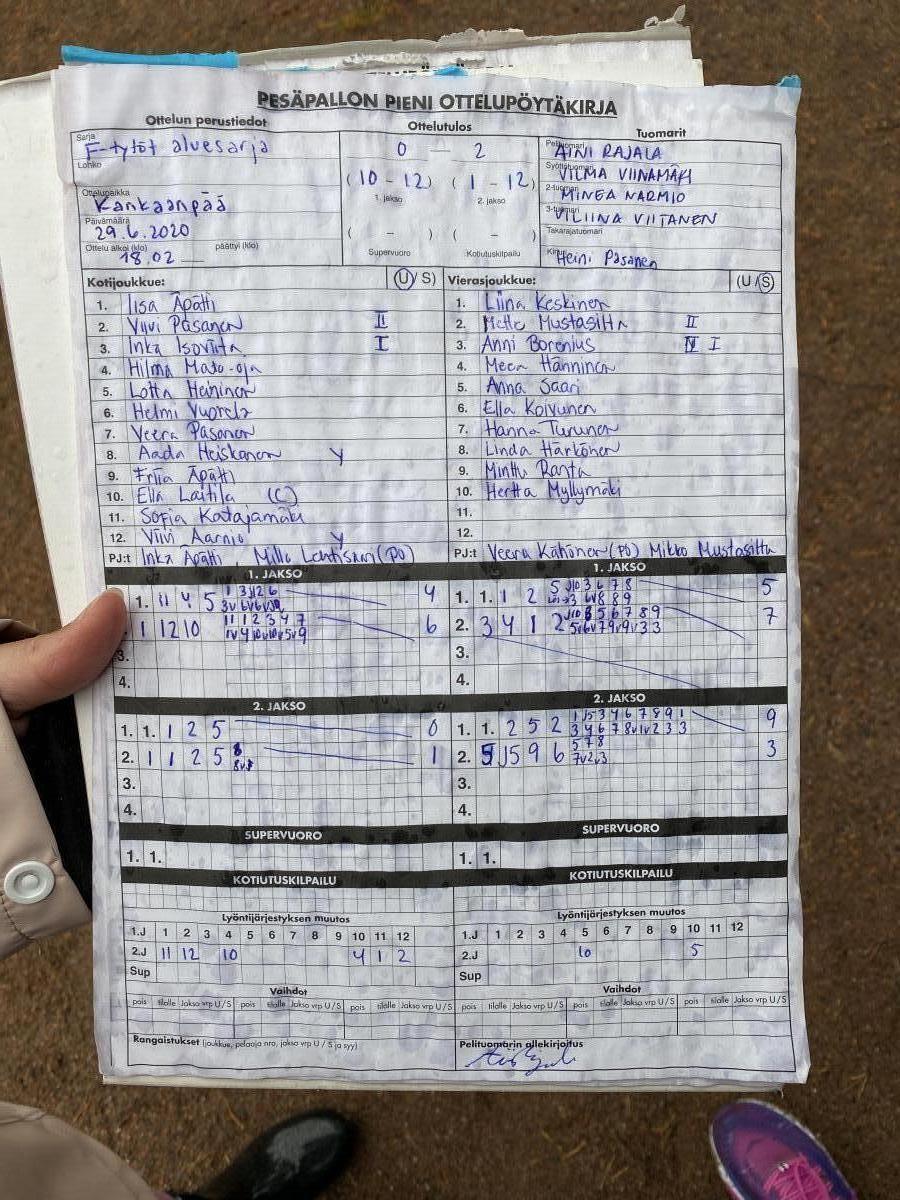 PESÄPALLON PIENI OTTELUPÖYTÄKIRJA
Ottelun perustiedot
Sarja
F-tytöt aluesarja
Lohko
Ottelupaikka
Kankaanpää
Päivämäärä
29.6.2020
Ottelu alkoi (klo) päättyi (klo)
18.02
Ottelutulos
0 — 2
(10 - 12) (1 - 12)
1. jakso 2. jakso
( - ) ( - )
Supervuoro Kotiutuskilpailu
Tuomarit
Pelituomari
AINI RAJALA
Syöttötuomari
VILMA VIINAMÄKI
2-tuomari
MINEA NARMIO
3-tuomari
VILIINA VIITANEN
Takarajatuomari
Kirjuri
Heini Pasanen
Kotijoukkue: (U/S)
1. Iisa Äpätti
2. Viivi Pasanen II
3. Inka Isoviita I
4. Hilma Mato-oja
5. Lotta Heininen
6. Helmi Vuorela
7. Veera Pasanen
8. Aada Heiskanen Y
9. Friia Äpätti
10. Ella Laitila (C)
11. Sofia Katajamäki
12. Viivi Aarnio Y
PJ:t Inka Äpätti, Milla Lehtisaari (PO)
Vierasjoukkue: (U/S)
1. Liina Keskinen
2. Mette Mustasilta II
3. Anni Borenius IV I
4. Meea Hänninen
5. Anna Saari
6. Ella Koivunen
7. Hanna Turunen
8. Linda Härkönen
9. Minttu Ranta
10. Hertta Myllymäki
11.
12.
PJ:t Veera Kähönen (PO) Mikko Mustasilta
1. JAKSO
1. 11 4 5 4
1 12 10 6
3.
4.
1. JAKSO
1. 1. 1 2 5
2. 3 4 1 2 7
3.
4.
2. JAKSO
1. 1. 1 2 5 0
2. 1 1 2 5 1
3.
4.
2. JAKSO
1. 1. 2 5 2 9
2. 5 J5 9 6 3
3.
4.
SUPERVUORO
1. 1.
SUPERVUORO
1. 1.
KOTIUTUSKILPAILU
KOTIUTUSKILPAILU
Lyöntijärjestyksen muutos
1.J 1 2 3 4 5 6 7 8 9 10 11 12
2.J 11 12 10 4 1 2
Sup
Lyöntijärjestyksen muutos
1.J 1 2 3 4 5 6 7 8 9 10 11 12
2.J 10 5
Sup
Vaihdot
pois tilalle Jakso vrp U/S pois tilalle Jakso vrp U/S pois tilalle Jakso vrp U/S
Vaihdot
pois tilalle Jakso vrp U/S pois tilalle Jakso vrp U/S pois tilalle Jakso vrp U/S
Rangaistukset (joukkue, pelaaja nro, jakso vrp U / S ja syy)
Pelituomarin allekirjoitus